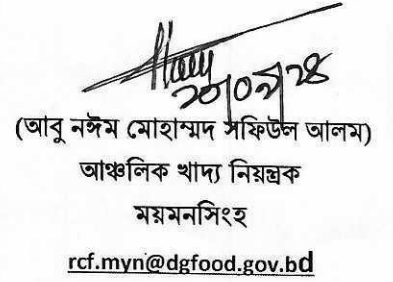 (আবু নঈম মোহাম্মদ সফিউল আলম)
আঞ্চলিক খাদ্য নিয়ন্ত্রক
ময়মনসিংহ
rcf.myn@dgfood.gov.bd